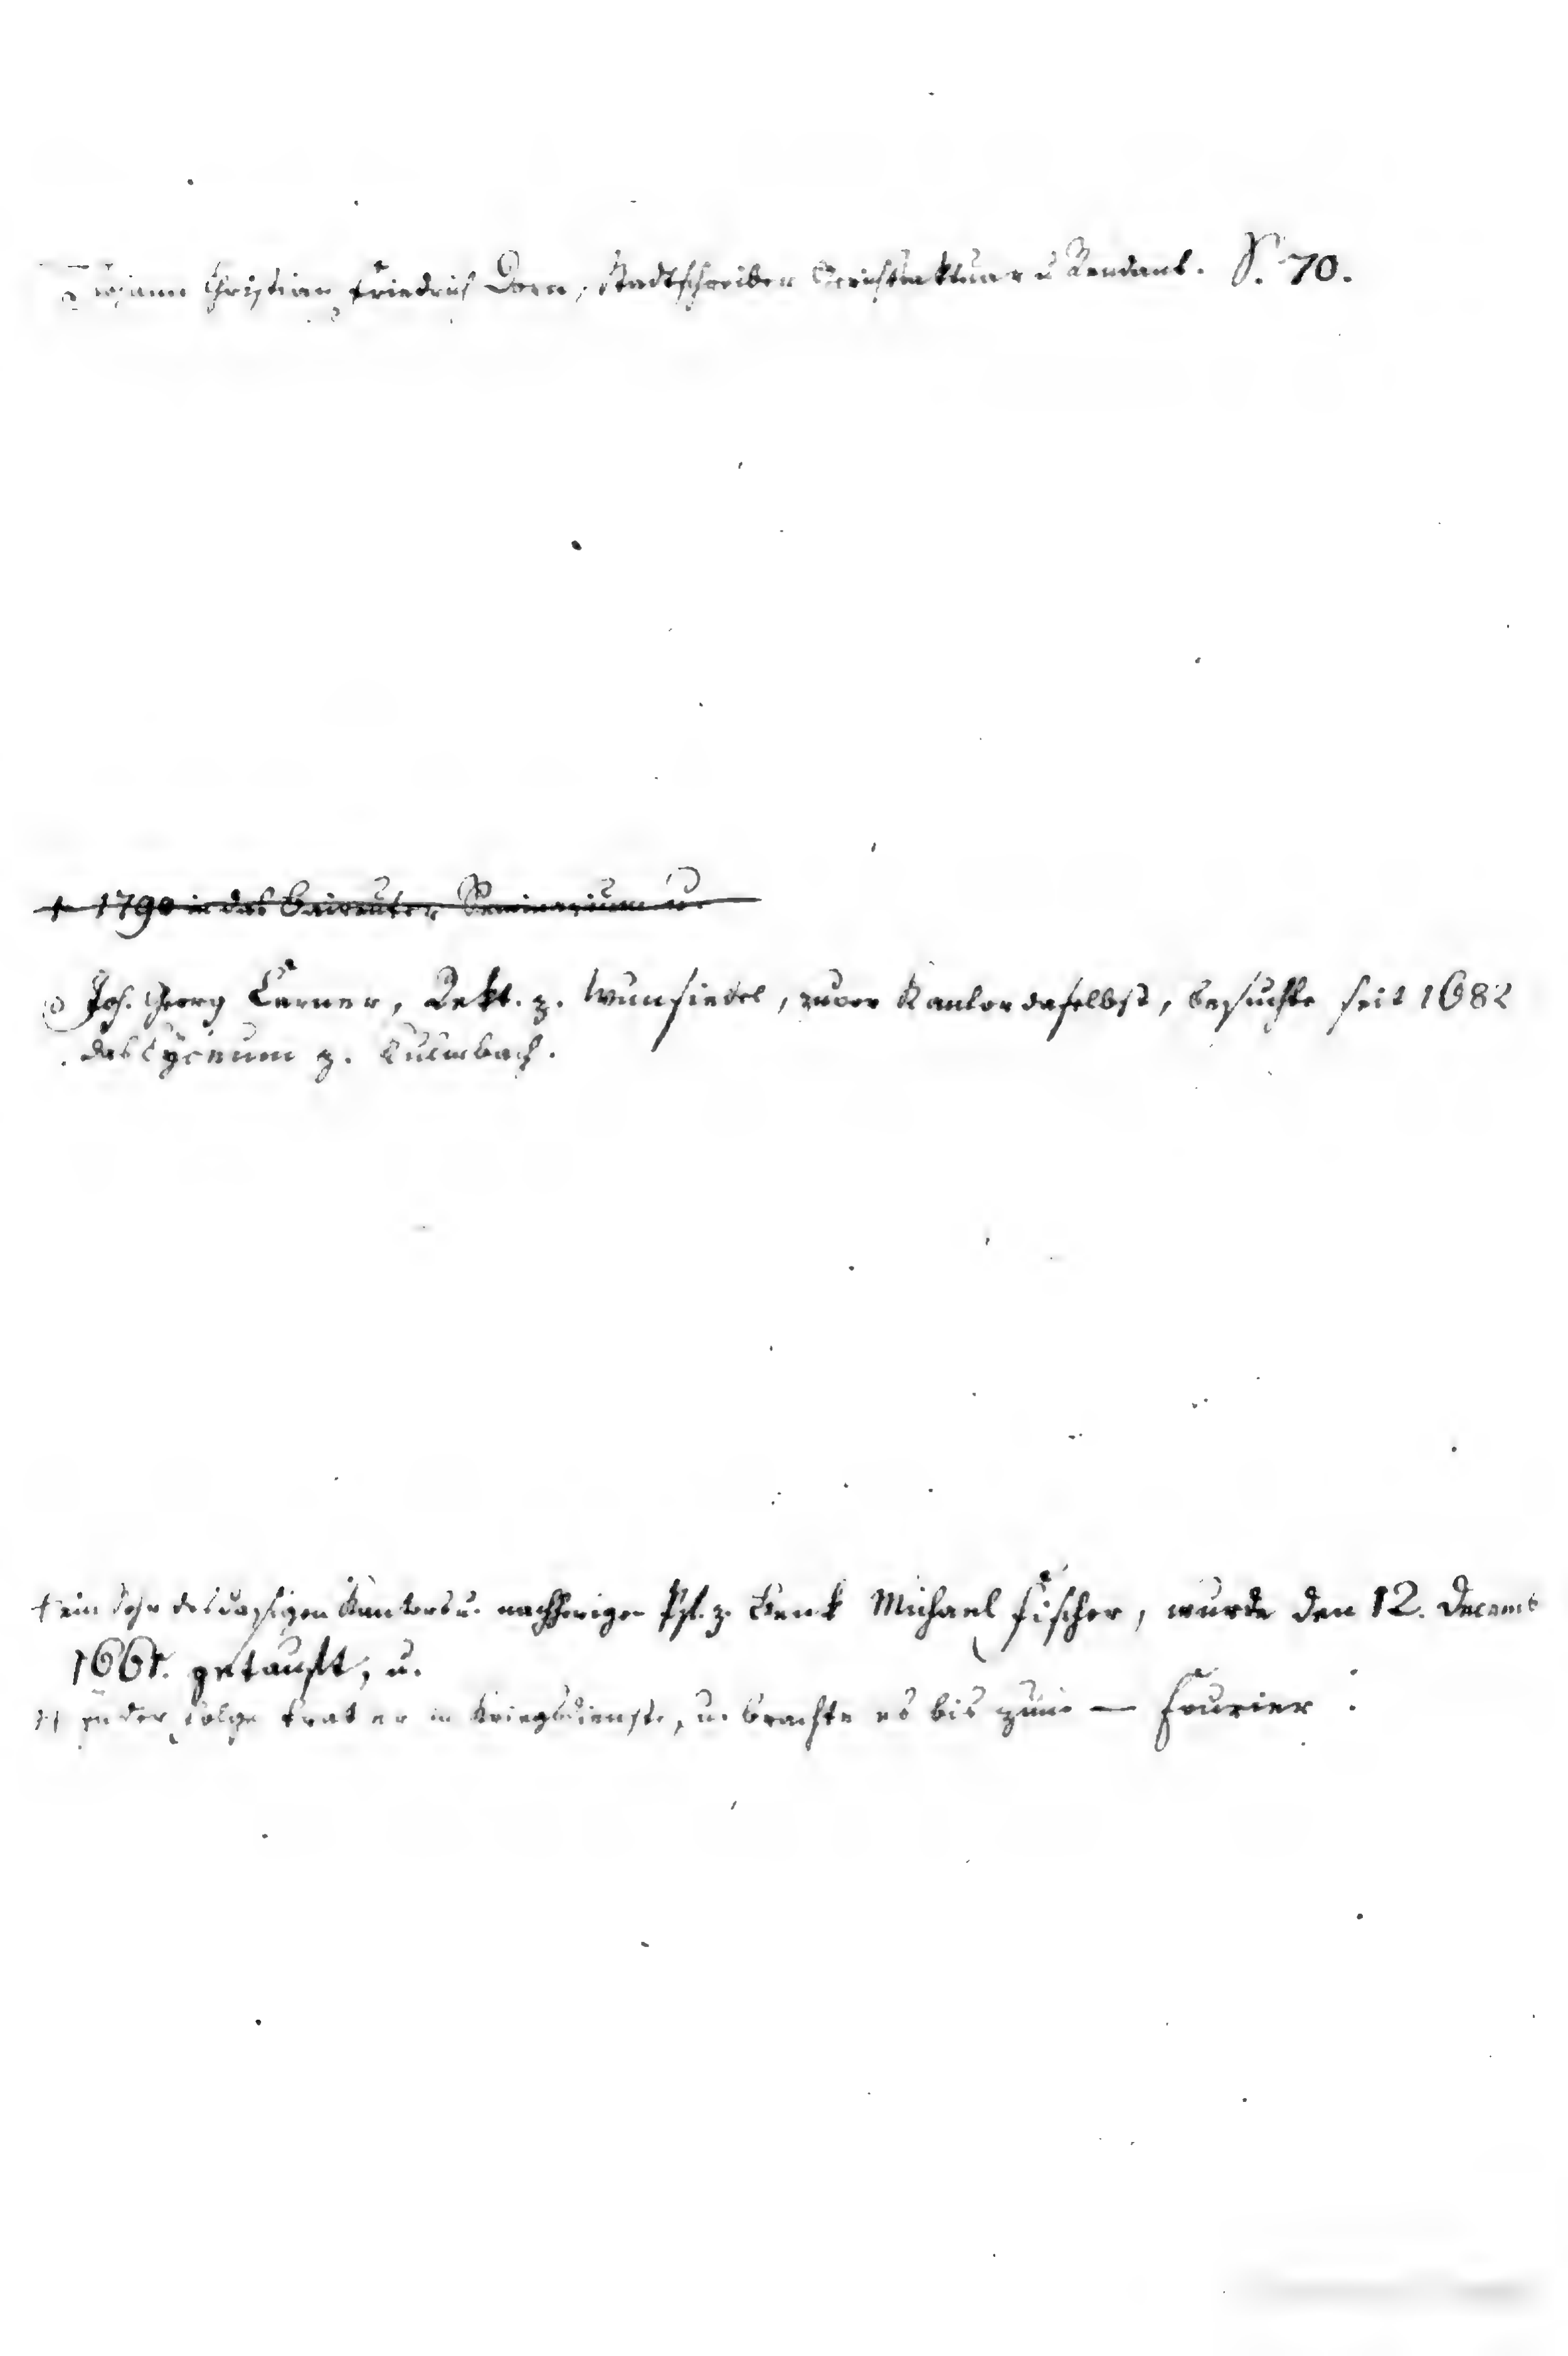 Johann Christian Friedrich Dorn, Stadtschreiber Gerichtsaktuar u Rendant. S. 70.
† 1790 in das Baireuter Seminarium u.
Joh. Georg Lerner, Rekt. z. Wunsiedel, zuvor Kantor daselbst, besuchte seit 1682
das Lyceum z. Kulmbach.
† ein Sohn des dasigen Kantors u. nachherigen Pf. z. Michael Fischer, wurde den 12. Decemb
1661. getauft, u.
†† in der Folge trat er in Kriegsdienste, u. brachte es bis zum — Fourier.